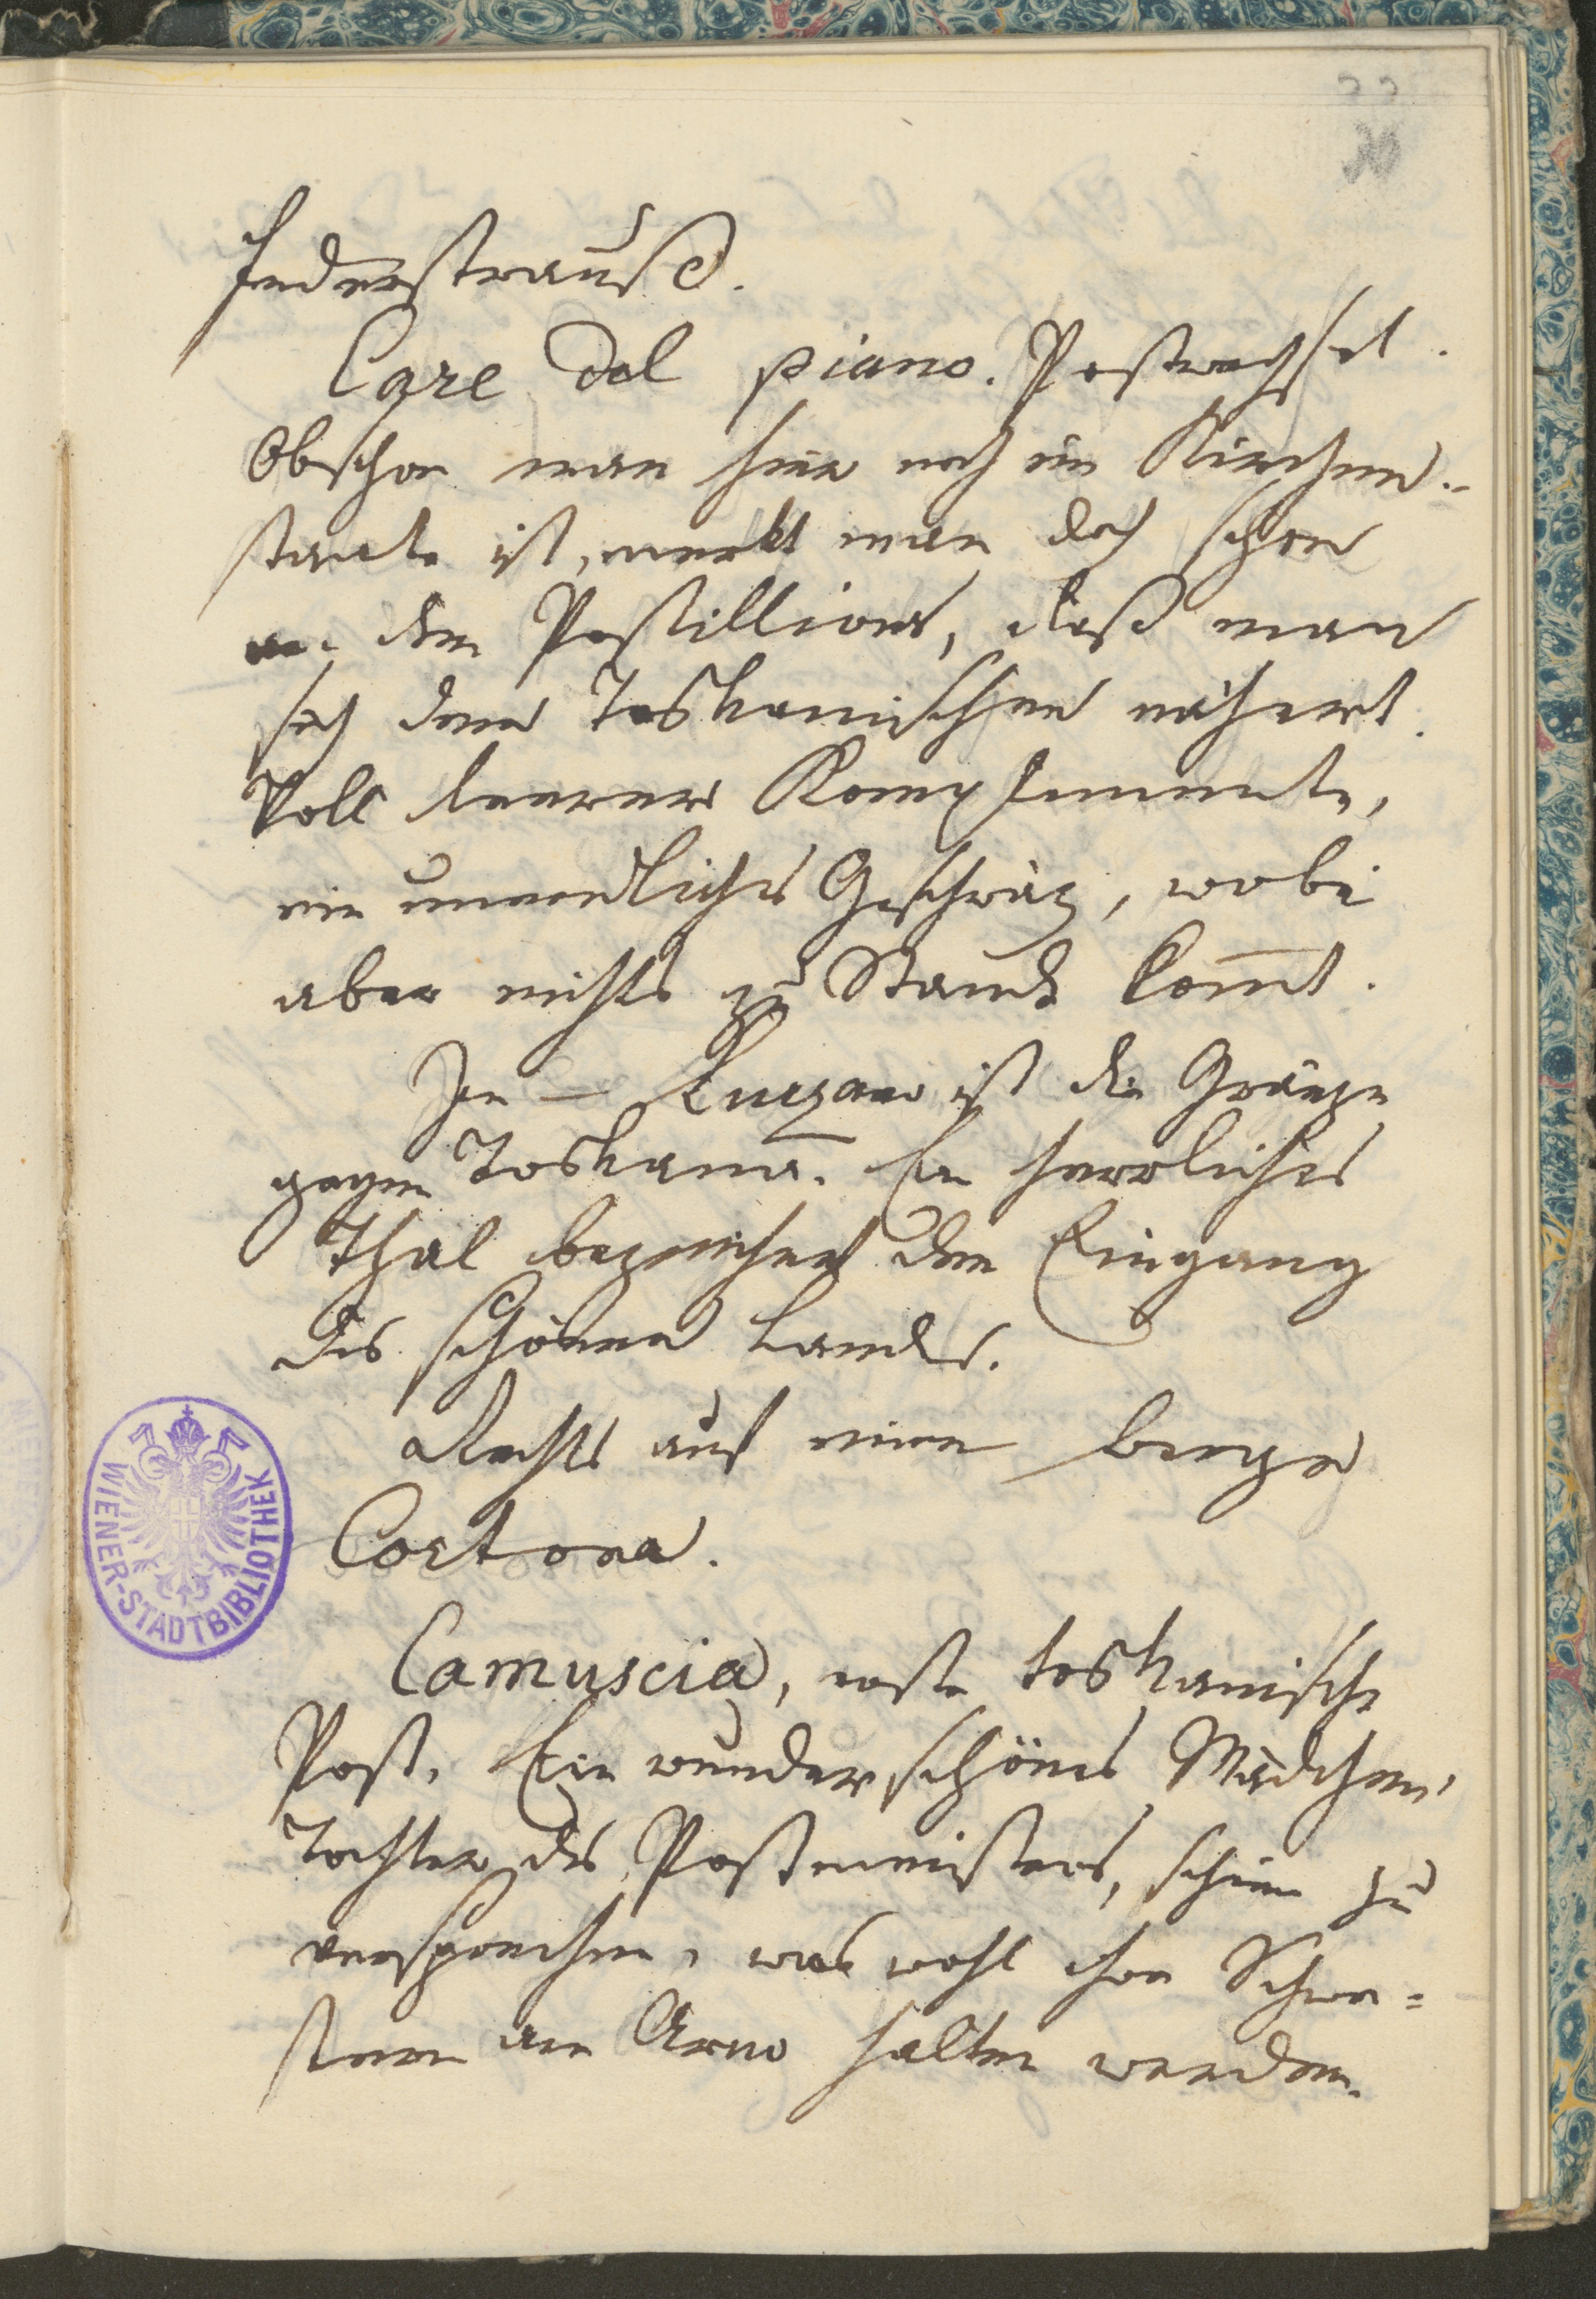 Federstrauß.
Case del piano. Postwechsel.
Obschon man hier noch im Kirchen-
staate ist, merkt man doch schon
an den Postillions, daß man
sich dem Toskanischen nähert.
Voll leerer Komplimente,
ein unendliches Geschwätz, wobei
aber nichts zu Stande kom̅t.
In – ist die Gränze
gegen Toskana. Ein herrliches
Thal bezeichnet den Eingang
des schönen Landes.
Rechts auf einem Berge
Cortona.
Camuscia, erste toskanische
Post. Ein wunderschönes Mädchen,
Tochter des Postmeisters, schien zu
versprechen, was wohl ihre Schwe=
stern am Arno halten werden.
WIENER-STADTBIBLIOTHEK